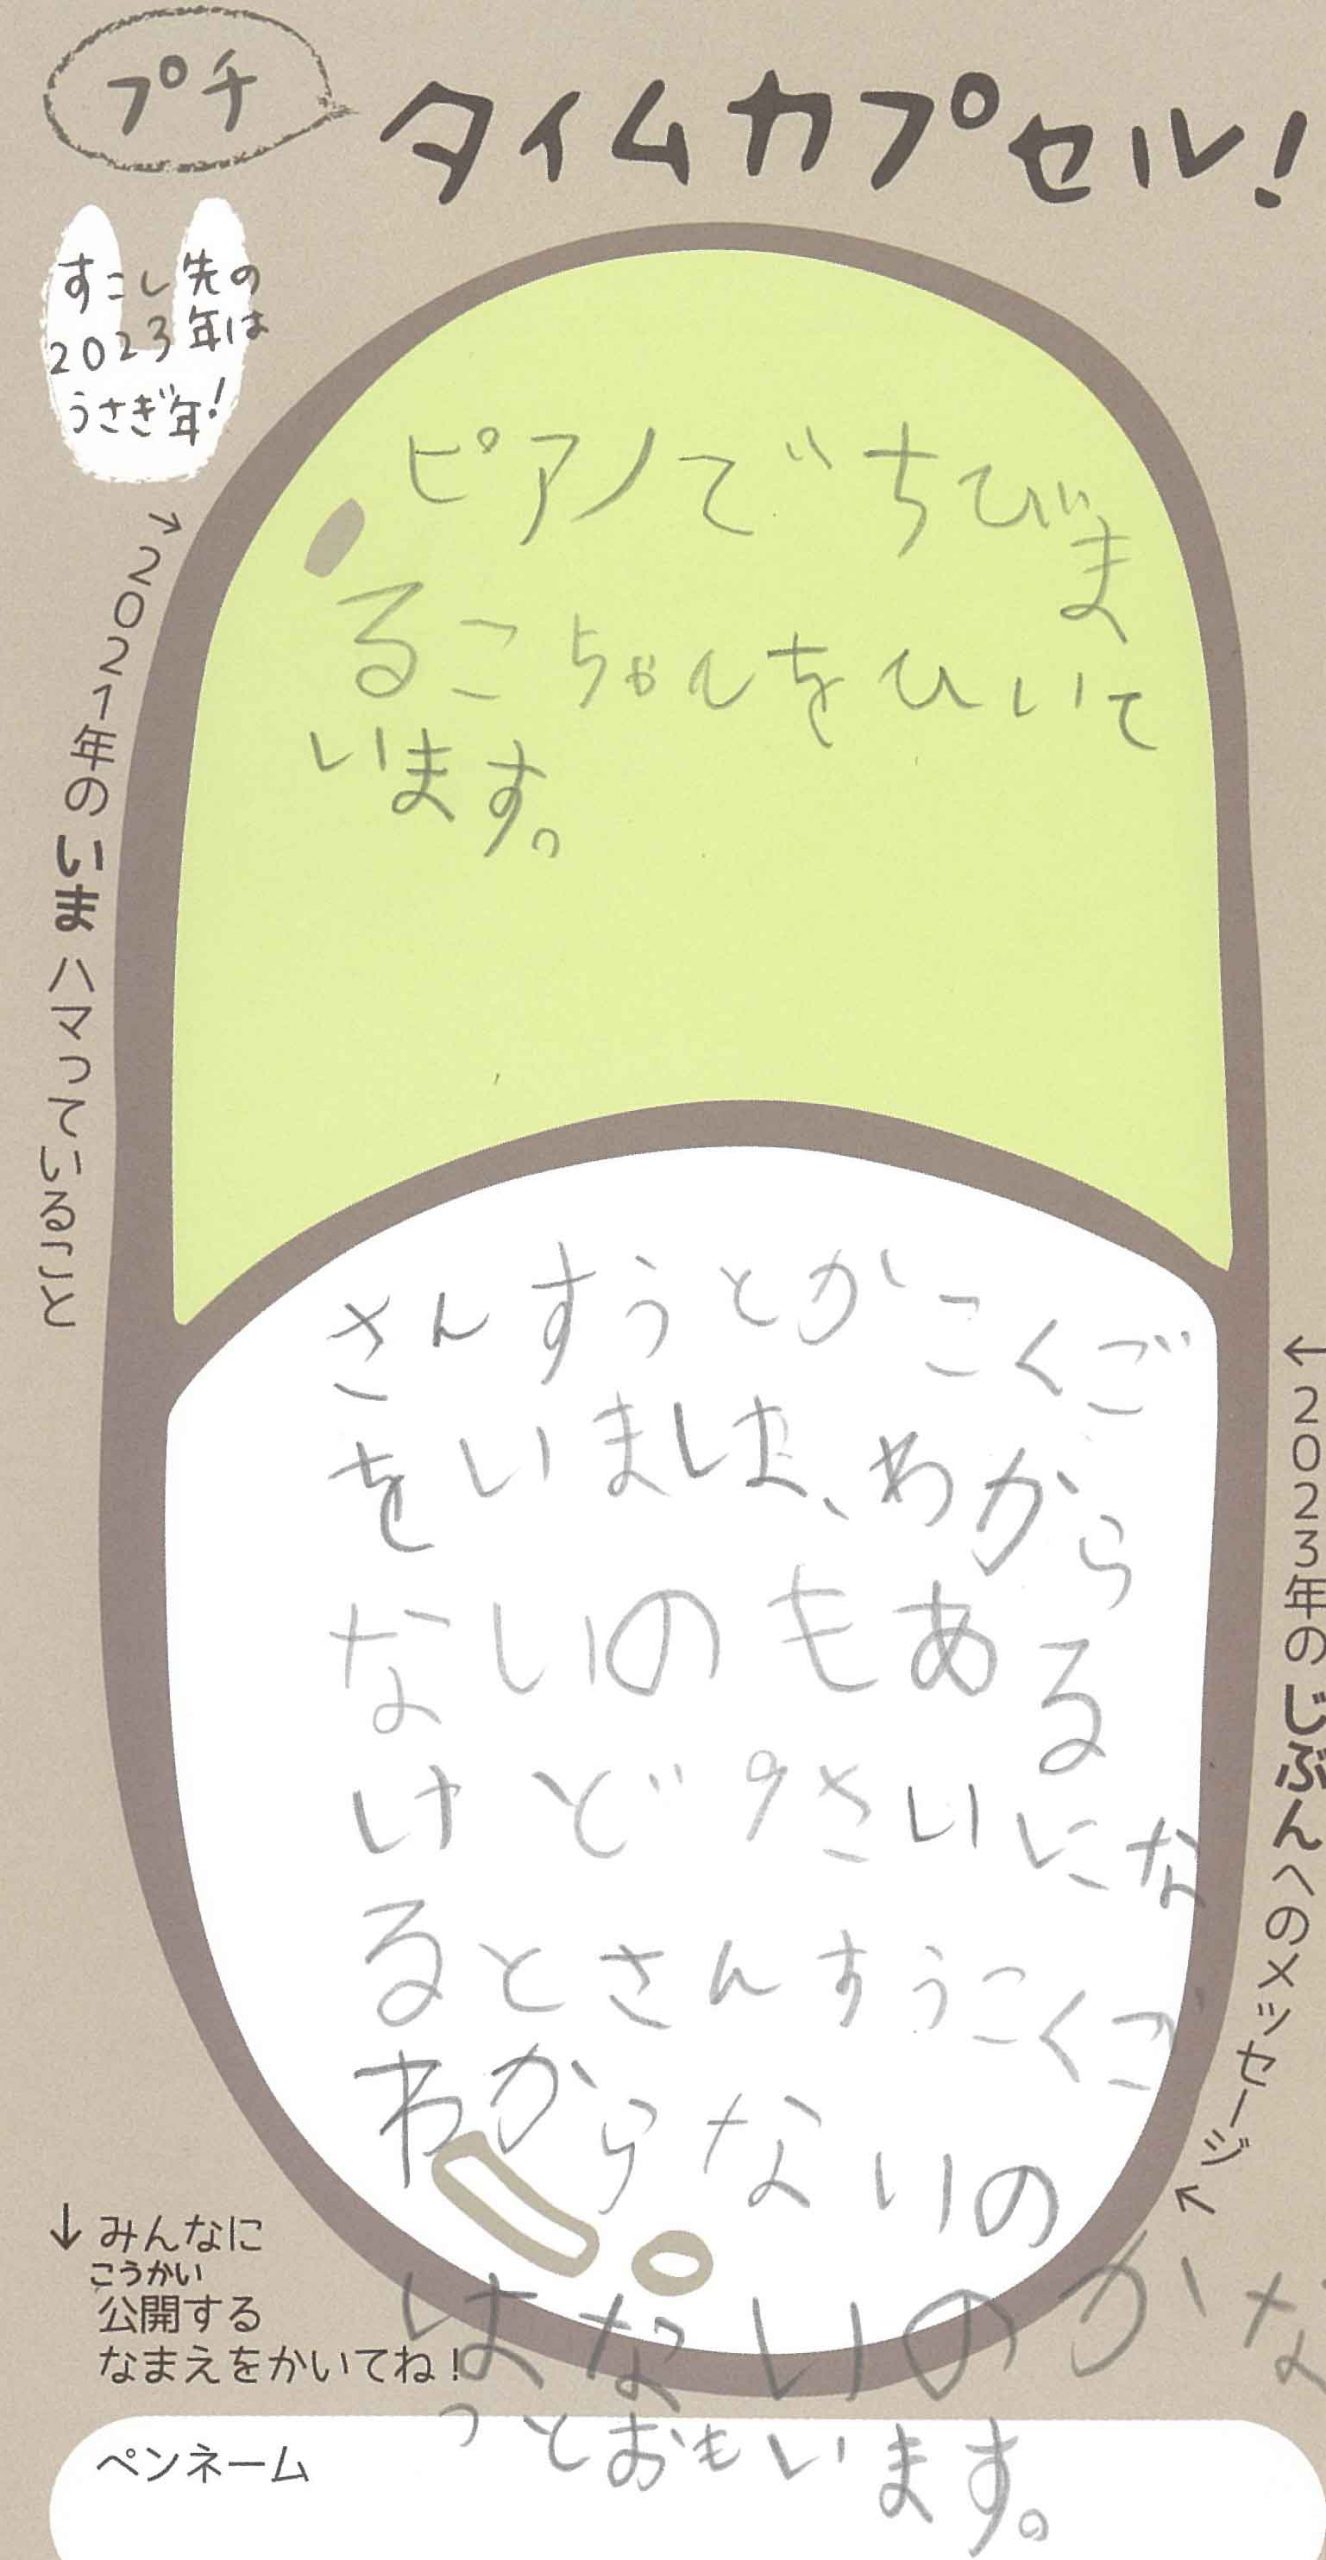 プチ
タイムカプセル!
すこし先の
2023年は
うさぎ年!
→2021年のいまハマっていること
ピアノでちびま
るこちゃんをひいて
います。
←2023年のじぶんへのメッセージ←
さんすうとかこくご
をいまは、わから
ないのもある
けど9さいにな
るとさんすうこくご
わからないの
はないのかな
っとおもいます。
↓みんなに
こうかい
公開する
なまえをかいてね!
ペンネーム